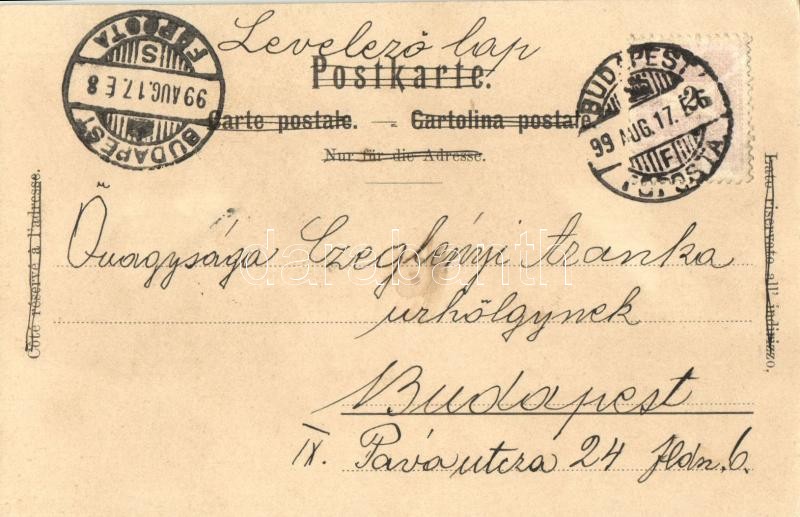 Levelező lap
Postkarte.
Carte postale. — Cartolina postale
Nur für die Adresse.
BUDAPEST
99 AUG. 17. E 8
S
FŐPOSTA
BUDAPEST
99 AUG. 17. E 6
F
FŐPOSTA
2
Côté réservé à l'adresse.
Lato riservato all' indirizzo.
Őnagysága Czeglényi Aranka
urhölgynek
Budapest
IX. Páva utcza 24 fldn. 6.
darabanth